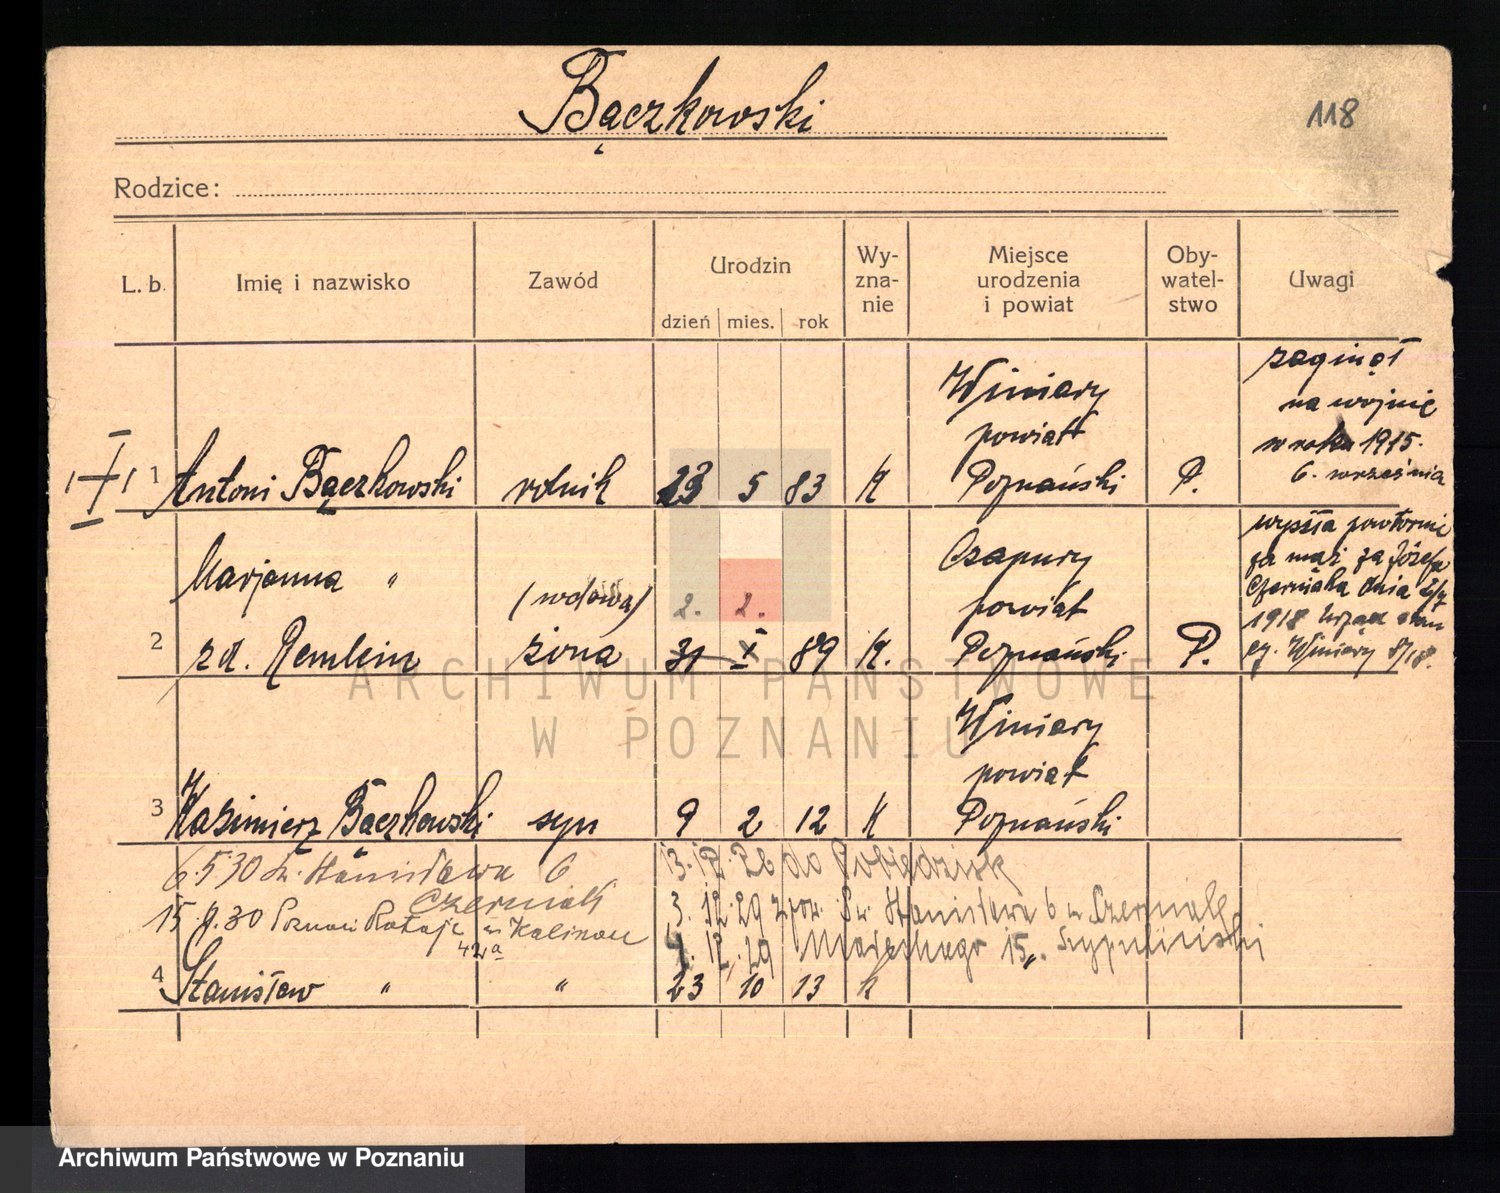 Bączkowski
118
Rodzice:
L. b.
Imię i nazwisko
Zawód
Urodzin
dzień
mies.
rok
Wy-
zna-
nie
Miejsce
urodzenia
i powiat
Oby-
watel-
stwo
Uwagi
1 Antoni Bączkowski
rolnik
23 5 83
K
Winiary
powiat
Poznański
P.
zaginął
na wojnie
w roku 1915.
6. września
2
Marjanna "
zd. Remlein
(wdowa)
żona
2. 2.
31 X 89
K.
Czapury
powiat
Poznański
P.
wyszła powtórnie
za mąż za Józefa
Czerniaka dnia
1918 Urząd stan
cy. Winiary 8/18.
3 Kazimierz Bączkowski
syn
9 2 12
K
Winiary
powiat
Poznański
6.5 30 Św. Stanisława 6
Czerniak
15 9.30 Poznań Rataje
42a
13. 12. 26 do Pobiedzisk
3. 12. 29 z poz. Św. Stanisława 6 u Czerniak
4. 12. 29 15
4 Stanisław "
"
23 10 13
k
ARCHIWUM PAŃSTWOWE
W POZNANIU
Archiwum Państwowe w Poznaniu